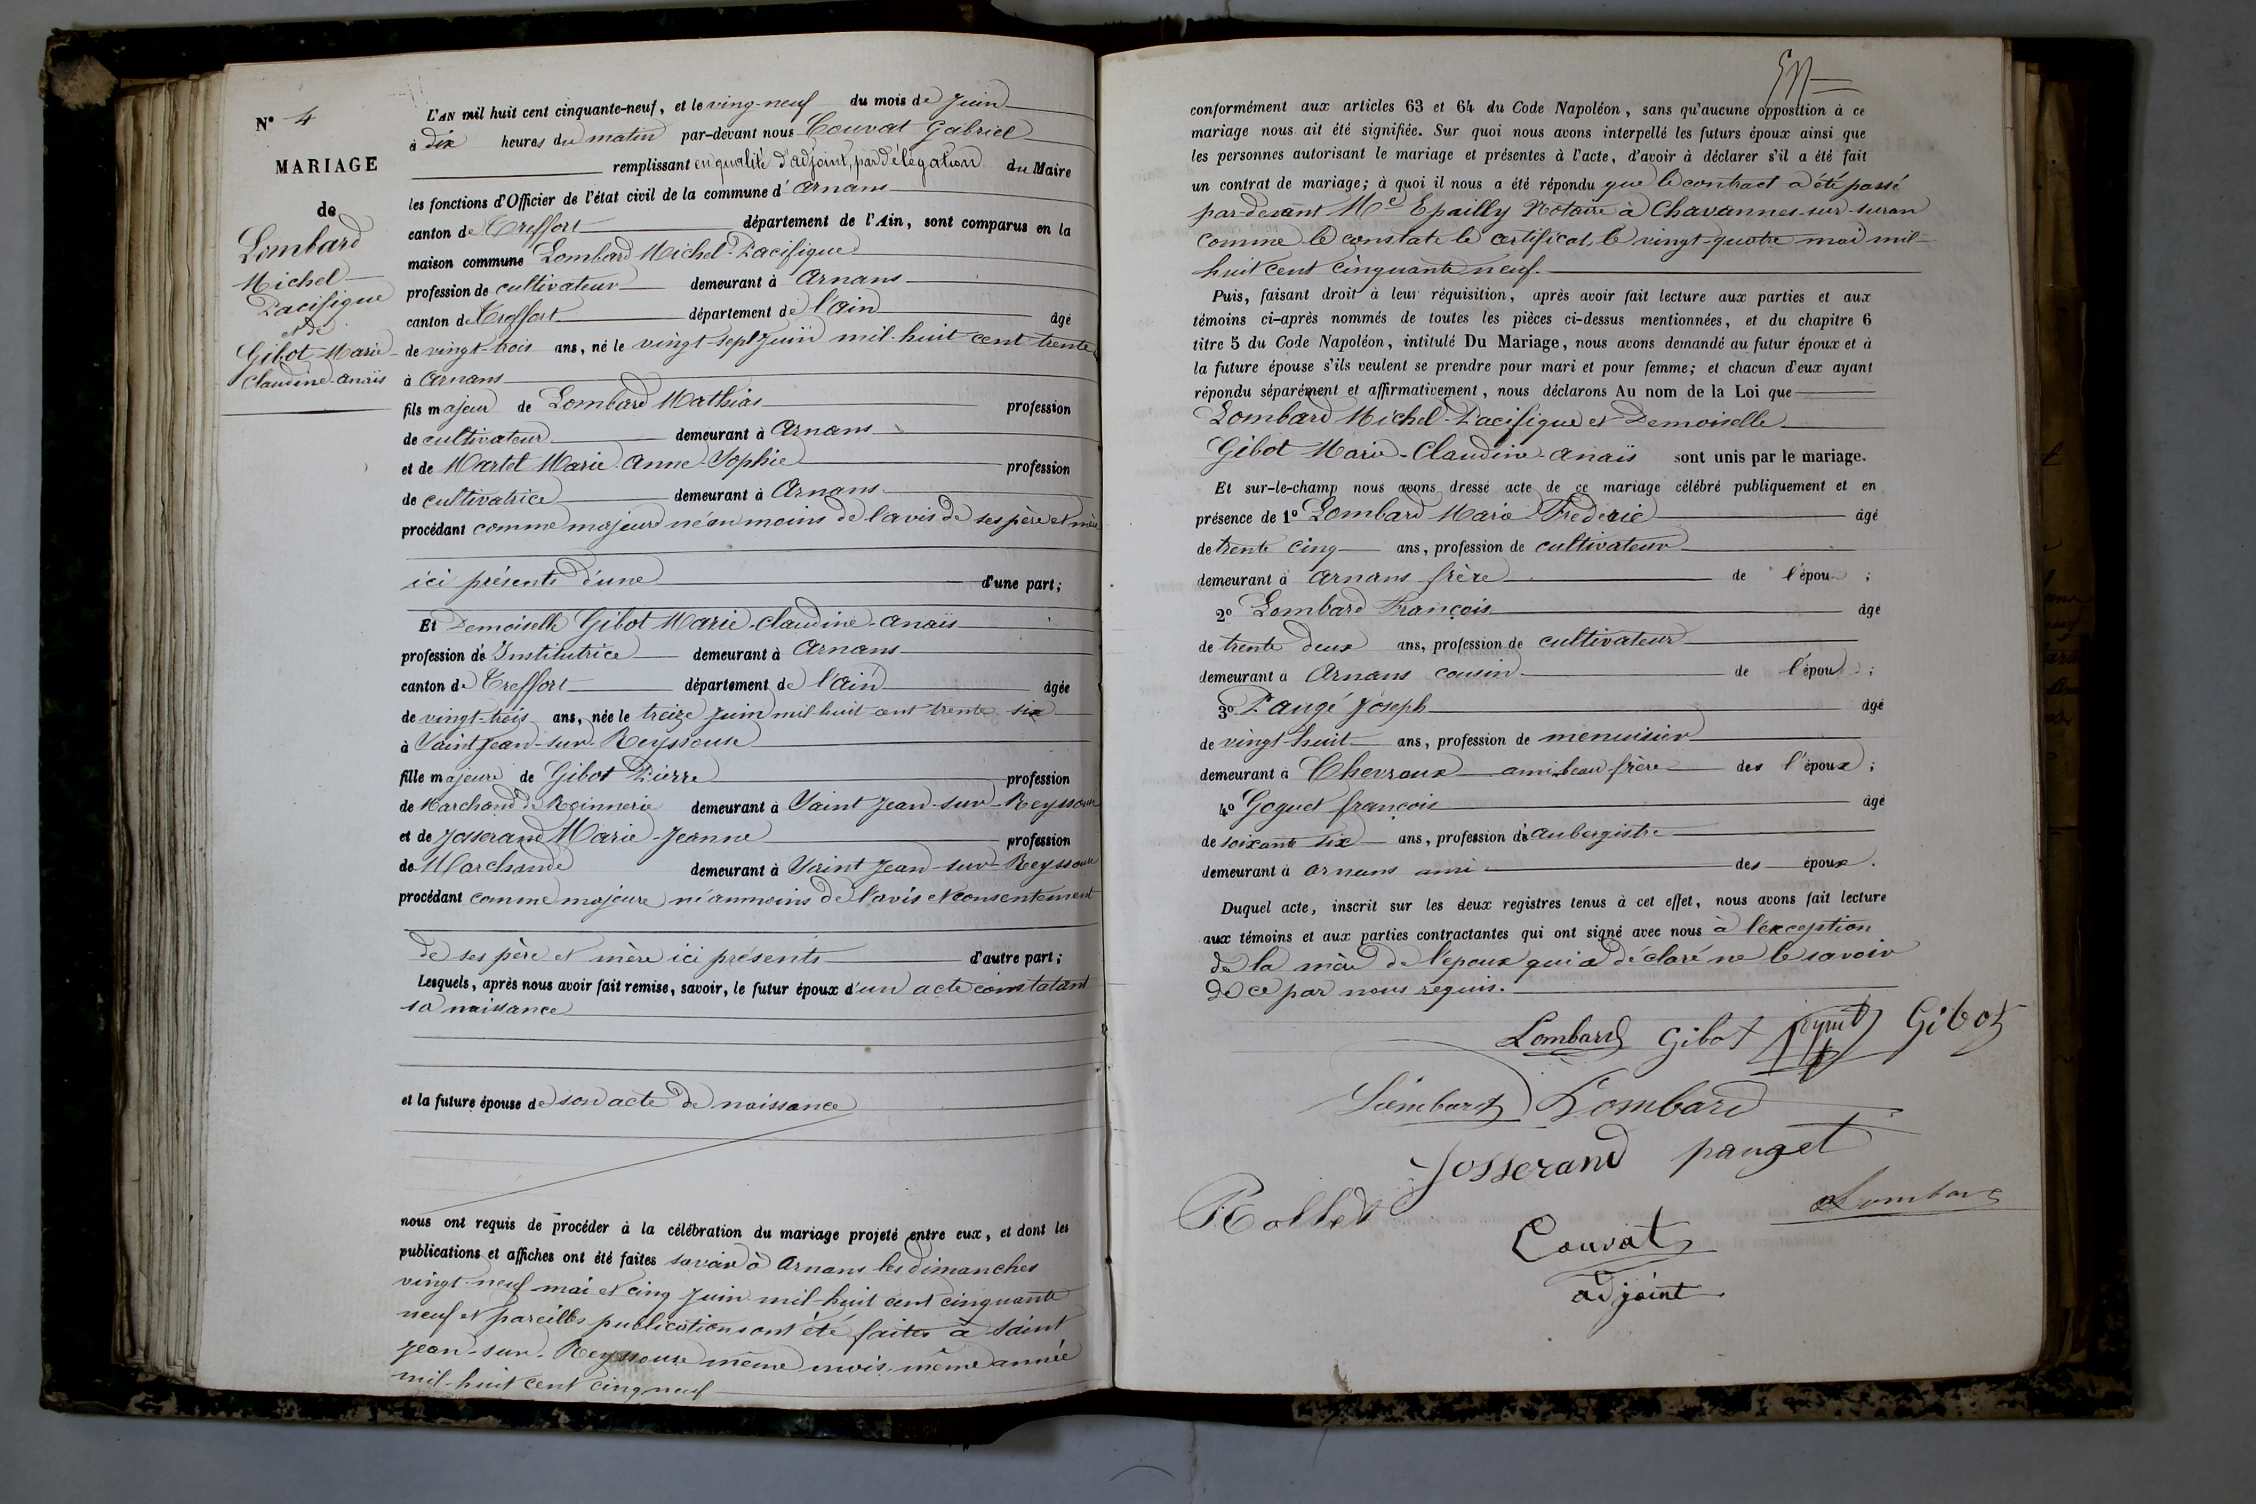 N° 4
MARIAGE
de
Lombard
Michel
Pacifique
et de
Gibot Marie
Claudine-anaïs
L'AN mil huit cent cinquante-neuf, et le ving-neuf du mois de Juin
à dix heures du matin par-devant nous Couvat Gabriel
remplissant en qualité d'adjoint, par délégation du Maire
les fonctions d'Officier de l'état civil de la commune d' arnans
canton de Treffort département de l'Ain, sont comparus en la
maison commune Lombard Michel-Pacifique
profession de cultivateur demeurant à arnans
canton de Treffort département de l'ain âgé
de vingt-trois ans, né le vingt-sept Juin mil-huit cent trente
à arnans
fils majeur de Lombard Mathias profession
de cultivateur demeurant à Arnans
et de Martel Marie anne-Sophie profession
de cultivatrice demeurant à Arnans
procédant comme majeur néanmoins de l'avis de ses père et mère
ici présents d'une d'une part;
Et Demoiselle Gibot Marie-Claudine-anaïs
profession de Institutrice demeurant à Arnans
canton de Treffort département de l'ain âgée
de vingt-trois ans, née le treize Juin mil huit cent trente-six
à Saint Jean-sur-Reyssouse
fille majeure de Gibot Pierre profession
de Marchand de demeurant à Saint Jean-sur-Reyssouse
et de Josserand Marie-Jeanne profession
de Marchande demeurant à Saint Jean-sur-Reyssouse
procédant comme majeure néanmoins de l'avis et consentement
de ses père et mère ici présents d'autre part;
Lesquels, après nous avoir fait remise, savoir, le futur époux d'un acte constatant
sa naissance
et la future épouse de son acte de naissance
nous ont requis de procéder à la célébration du mariage projeté entre eux, et dont les
publications et affiches ont été faites savoir à Arnans les dimanches
vingt-neuf mai et cinq Juin mil-huit cent cinquante
neuf et pareilles publications ont été faites à Saint
Jean-sur-Reyssouse même mois même année
mil-huit cent cinq neuf
conformément aux articles 63 et 64 du Code Napoléon, sans qu'aucune opposition à ce
mariage nous ait été signifiée. Sur quoi nous avons interpellé les futurs époux ainsi que
les personnes autorisant le mariage et présentes à l'acte, d'avoir à déclarer s'il a été fait
un contrat de mariage; à quoi il nous a été répondu que le contract a été passé
par-devant Me Epailly Notaire à Chavannes-sur-suran
comme le constate le certificat, le vingt-quatre mai mil-
huit cent cinquante neuf.
Puis, faisant droit à leur réquisition, après avoir fait lecture aux parties et aux
témoins ci-après nommés de toutes les pièces ci-dessus mentionnées, et du chapitre 6
titre 5 du Code Napoléon, intitulé Du Mariage, nous avons demandé au futur époux et à
la future épouse s'ils veulent se prendre pour mari et pour femme; et chacun d'eux ayant
répondu séparément et affirmativement, nous déclarons Au nom de la Loi que
Lombard Michel-Pacifique et Demoiselle
Gibot Marie-Claudine-anaïs sont unis par le mariage.
Et sur-le-champ nous avons dressé acte de ce mariage célébré publiquement et en
présence de 1° Lombard Marie Frederic âgé
de trente cinq ans, profession de cultivateur
demeurant à arnans frère de l'époux ;
2° Lombard François âgé
de trente deux ans, profession de cultivateur
demeurant à Arnans cousin de l'époux ;
3° Paugé Joseph âgé
de vingt-huit ans, profession de menuisier
demeurant à Chevroux ami beau frère des l'époux ;
4° Goguet françois âgé
de soixante six ans, profession de aubergiste
demeurant à arnans ami des époux.
Duquel acte, inscrit sur les deux registres tenus à cet effet, nous avons fait lecture
aux témoins et aux parties contractantes qui ont signé avec nous à l'exception
de la mère de l'epoux qui a déclaré ne le savoir
de ce par nous requis.
Lombard Gibot Gibot
Lombard Lombard
Josserand pauget
Rollet Lombard
Couvat
adjoint